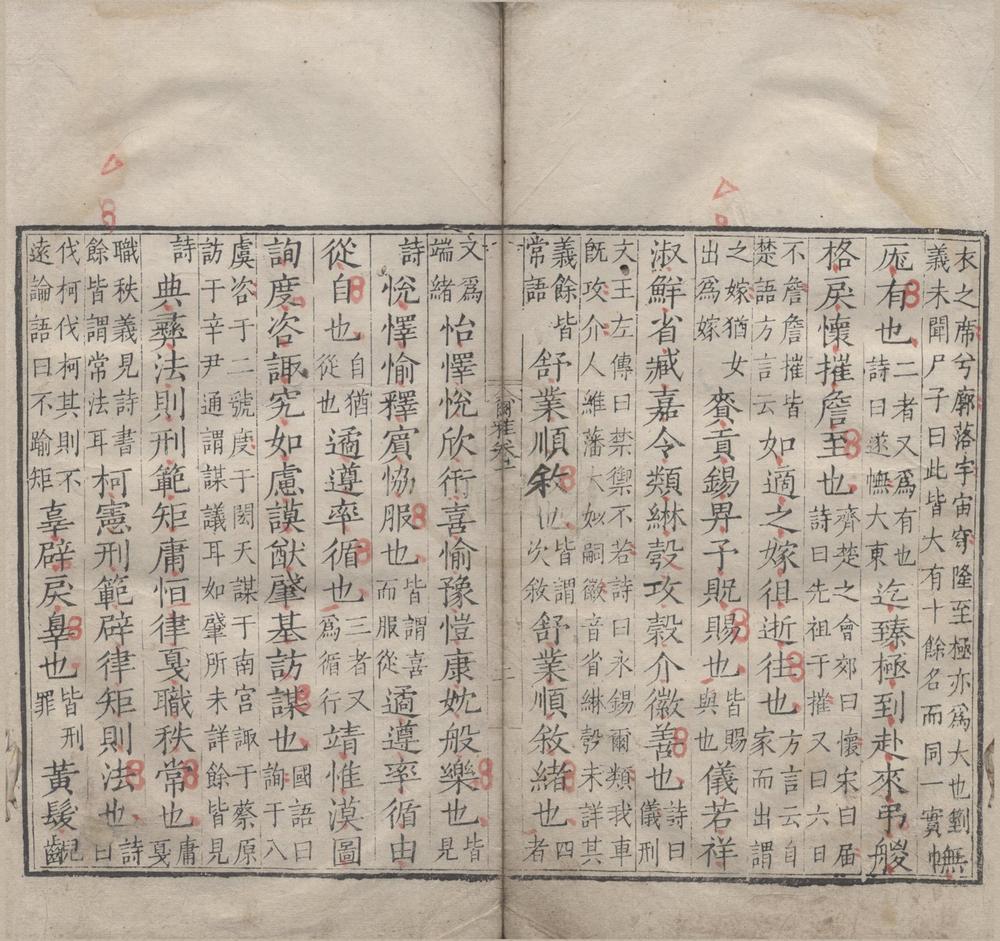 衣之席兮廓落宇宙穹隆至極亦爲大也箌義未聞尸子曰此皆大有十餘名而同一實幠
厖有也二者又爲有也詩曰遂幠大東迄臻極到赴來弔艐
格戾懷摧詹至也齊楚之會郊曰懷宋曰届詩曰先祖于摧又曰六日
不詹詹摧皆楚語方言云如適之嫁徂逝往也方言云自家而出謂
之嫁猶女出爲嫁賚貢錫畀予貺賜也皆賜與也儀若祥
淑鮮省臧嘉令類綝彀攻穀介徽善也詩曰儀刑
文王左傳曰禁禦不若詩曰永錫爾類我車旣攻介人維藩大姒嗣徽音省綝彀未詳其
義餘皆常語舒業順敘也皆謂次敘舒業順敘緒也四者
爾雅卷上
二
又爲端緒怡懌悅欣衎喜愉豫愷康妉般樂也皆見
詩悅懌愉釋賓協服也皆謂喜而服從遹遵率循由
從自也自猶從也遹遵率循也三者又爲循行靖惟漠圖
詢度咨諏究如慮謨猷肇基訪謀也國語曰詢于八
虞咨于二虢度于閎夭謀于南宮諏于蔡原訪于辛尹通謂謀議耳如肇所未詳餘皆見
詩典彝法則刑範矩庸恒律戛職秩常也庸戛
職秩義見詩書餘皆謂常法耳柯憲刑範辟律矩則法也詩曰
伐柯伐柯其則不遠論語曰不踰矩辜辟戾辠也皆刑罪黃髮齯